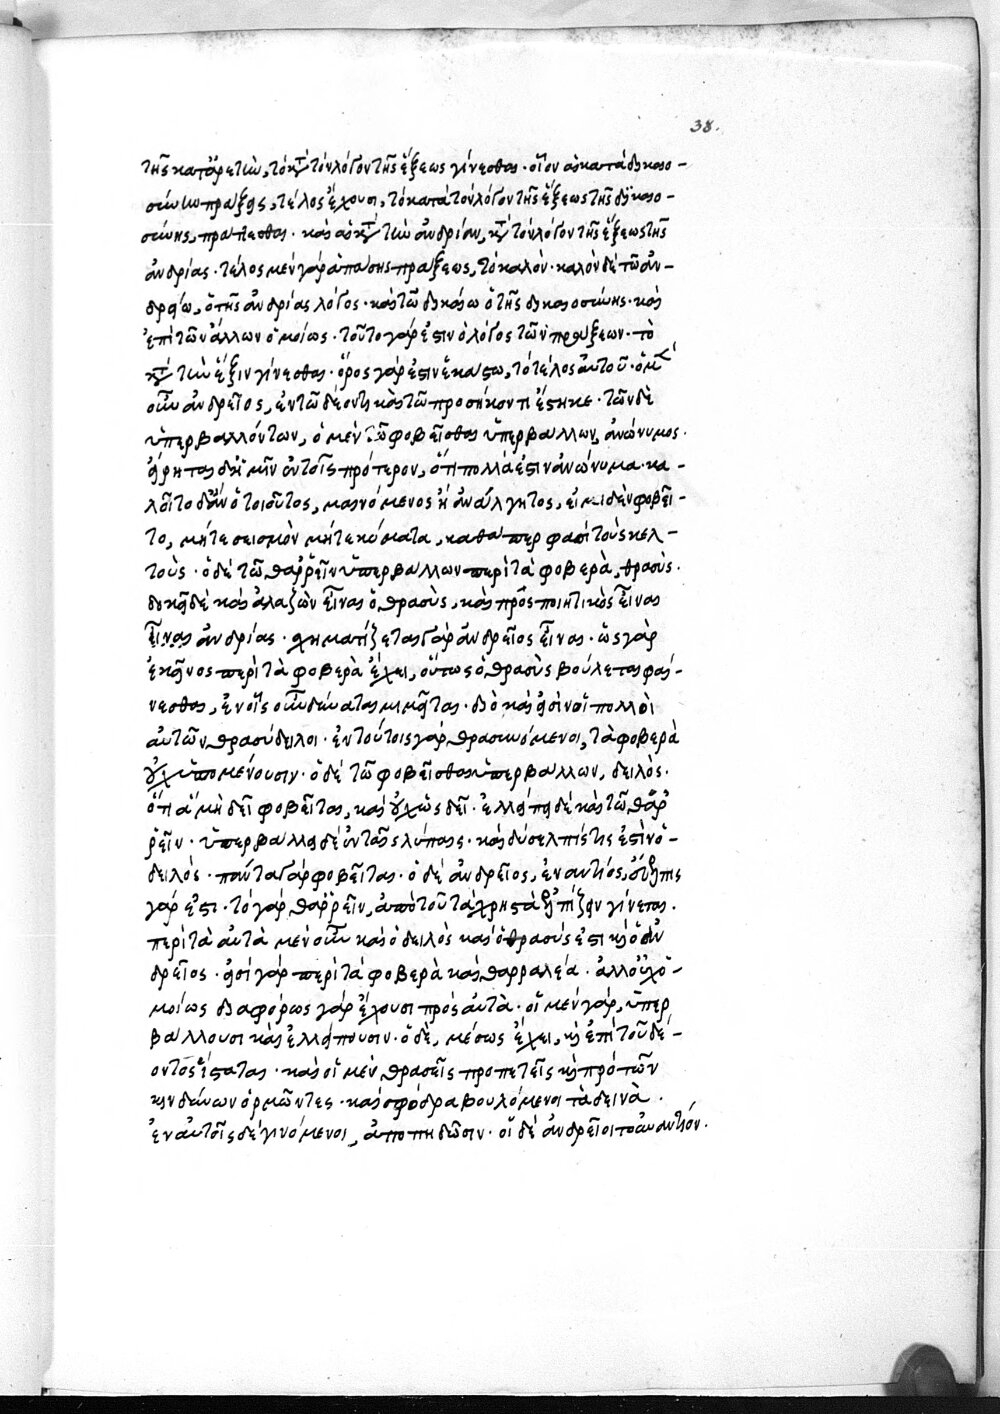 38.
τῆς κατ' ἀρετὴν, τὸ κατὰ τὸν λόγον τῆς ἕξεως γίνεσθαι· οἷον αἱ κατὰ δικαιο-
σύνην πράξεις, τέλος ἔχουσι, τὸ κατὰ τὸν λόγον τῆς ἕξεως τῆς δικαιο-
σύνης, πράττεσθαι· καὶ αἱ κατὰ τὴν ἀνδρίαν, κατὰ τὸν λόγον τῆς ἕξεως τῆς
ἀνδρίας· τέλος μὲν γὰρ ἁπάσης πράξεως, τὸ καλόν· καλὸν δὲ τῶ ἀν-
δρείω, ὁ τῆς ἀνδρίας λόγος· καὶ τῶ δικαίω ὁ τῆς δικαιοσύνης· καὶ
ἐπὶ τῶν ἄλλων ὁμοίως· τοῦτο γάρ ἐστιν ὁ λόγος τῶν πράξεων· τὸ
κατὰ τὴν ἕξιν γίνεσθαι· ὅρος γάρ ἐστιν ἑκάστω, τὸ τέλος αὐτοῦ· ὁ μὲν
οὖν ἀνδρεῖος, ἐν τῶ δέοντι καὶ τῶ προσήκοντι ἕστηκε· τῶν δὲ
ὑπερβαλλόντων, ὁ μὲν τῶ φοβεῖσθαι ὑπερβάλλων, ἀνώνυμος·
εἴρηται δὲ ἡμῖν ἐν τοῖς πρότερον, ὅτι πολλά ἐστιν ἀνώνυμα· κα-
λοῖτο δ' ἂν ὁ τοιοῦτος, μαινόμενος ἢ ἀνάλγητος, εἰ μηδὲν φοβεῖ-
το, μήτε σεισμὸν μήτε κύματα, καθάπερ φασὶ τοὺς κελ-
τούς· ὁ δὲ τῶ θαρρεῖν ὑπερβάλλων περὶ τὰ φοβερὰ, θρασύς·
δοκεῖ δὲ καὶ ἀλαζὼν εἶναι ὁ θρασὺς, καὶ προσποιητικὸς εἶναι
εἶναι ἀνδρίας· σχηματίζεται γὰρ ἀνδρεῖος εἶναι· ὡς γὰρ
ἐκεῖνος περὶ τὰ φοβερὰ ἔχει, οὕτως ὁ θρασὺς βούλεται φαί-
νεσθαι, ἐν οἷς οὖν δύναται μιμεῖται· διὸ καὶ εἰσὶν οἱ πολλοὶ
αὐτῶν θρασύδειλοι· ἐν τούτοις γὰρ θρασυνόμενοι, τὰ φοβερὰ
οὐχ ὑπομένουσιν· ὁ δὲ τῶ φοβεῖσθαι ὑπερβάλλων, δειλός·
ὅτι ἃ μὴ δεῖ φοβεῖται, καὶ οὐχ ὡς δεῖ· ἐλλείπει δὲ καὶ τῶ θαρ-
ρεῖν· ὑπερβάλλει δὲ ἐν ταῖς λύπαις· καὶ δύσελπίς τίς ἐστιν ὁ
δειλός· πάντα γὰρ φοβεῖται· ὁ δὲ ἀνδρεῖος, ἐναντίος, εὔελπις
γάρ ἐστι· τὸ γὰρ θαρρεῖν, ἀπὸ τοῦ τὰ χρηστὰ ἐλπίζειν γίνεται·
περὶ τὰ αὐτὰ μὲν οὖν καὶ ὁ δειλὸς καὶ ὁ θρασύς ἐστι καὶ ὁ ἀν
δρεῖος· εἰσὶ γὰρ περὶ τὰ φοβερὰ καὶ θαρραλέα· ἀλλ' οὐχ ὁ-
μοίως διαφόρως γὰρ ἔχουσι πρὸς αὐτά· οἱ μὲν γὰρ, ὑπερ
βάλλουσι καὶ ἐλλείπουσιν· ὁ δὲ, μέσως ἔχει, καὶ ἐπὶ τοῦ δέ-
οντος ἵσταται· καὶ οἱ μὲν θρασεῖς προπετεῖς καὶ πρὸ τῶν
κινδύνων ὁρμῶντες· καὶ σφόδρα βουλόμενοι τὰ δεινά·
ἐν αὐτοῖς δὲ γινόμενοι, ἀποπηδῶσιν· οἱ δὲ ἀνδρεῖοι τοὐναντίον·